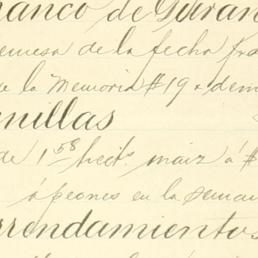 Banco de Duran
remesa de la fecha fra
de la Memoria #19 a dem
nillas
de 1 58 hects. maiz a $
á peones en la semana
rrendamientos